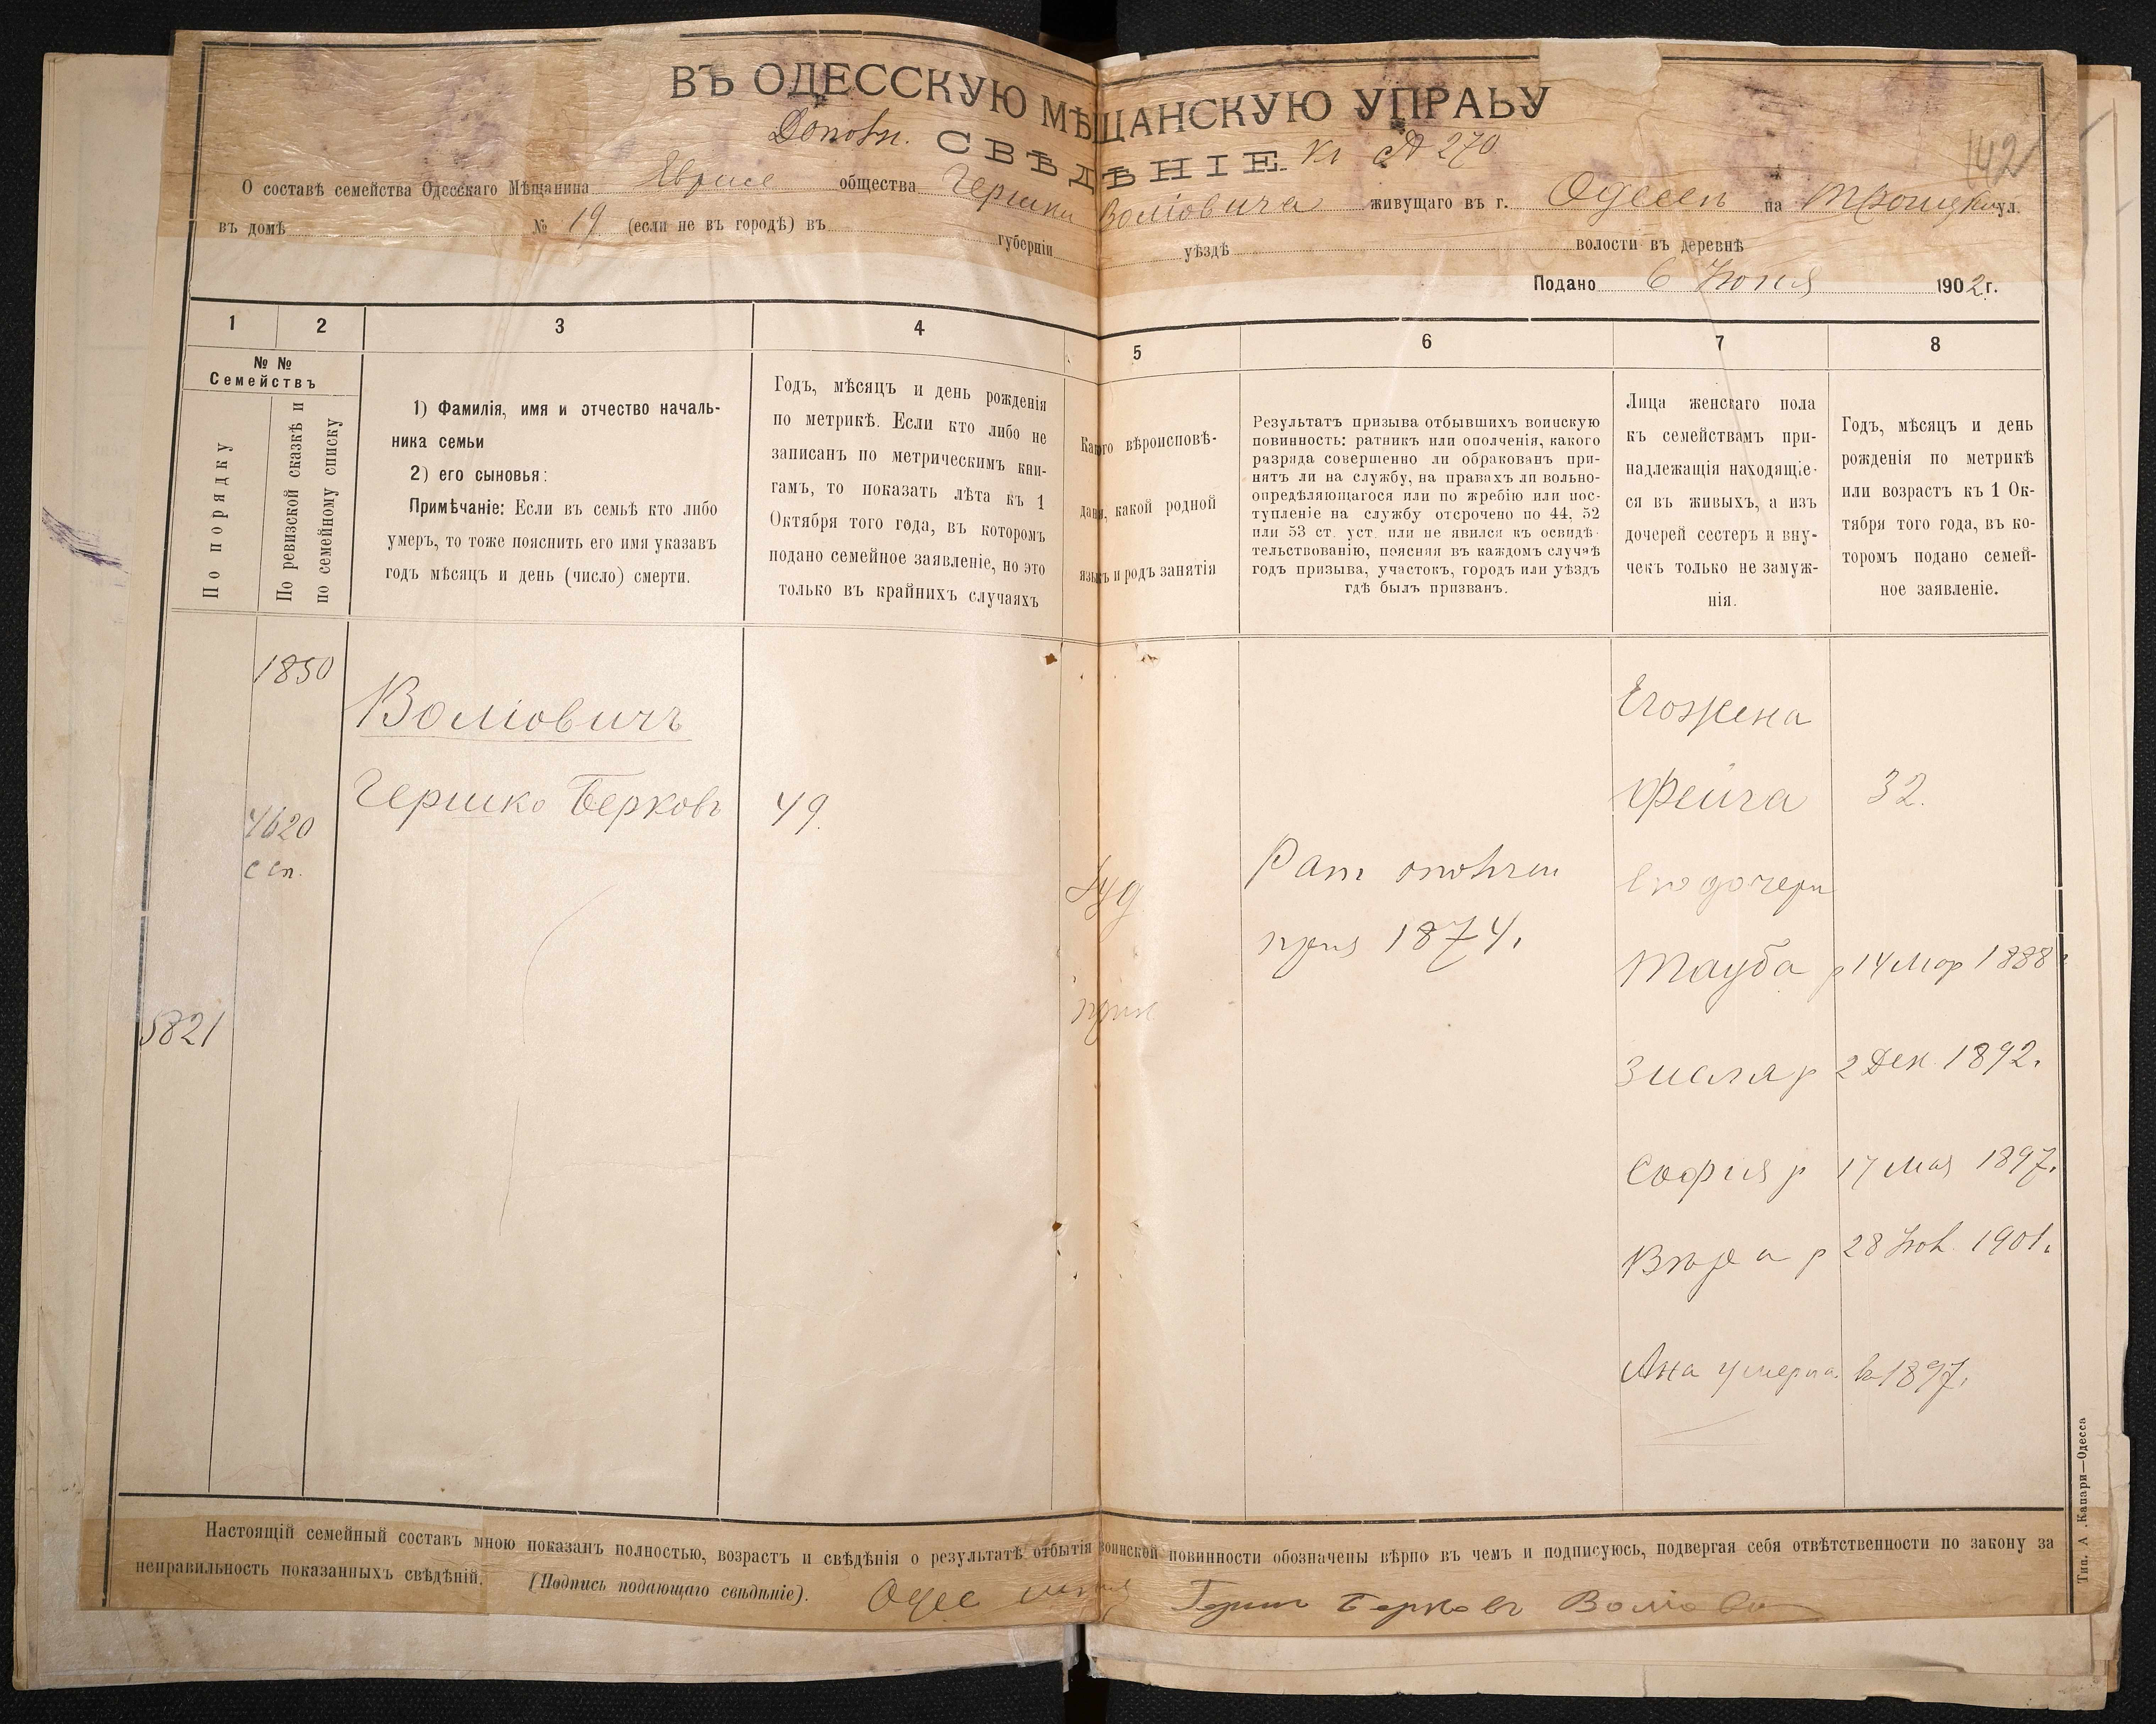 ВЪ ОДЕССКУЮ МѢЩАНСКУЮ УПРАВУ
Дополн. СВѢДѢНІЕ. къ № 270
142
О составѣ семейства Одесскаго Мѣщанина общества Гершки Воліовича живущаго въ г. Одессѣ на Троицкой ул.
въ домѣ № 19 (если не въ городѣ) въ губерніи уѣздѣ волости въ деревнѣ
Подано 6 Іюня 1902 г.
1 2 3 4 5 6 7 8
№ №
Семействъ
По порядку
По ревизской сказкѣ и
по семейному списку
1) Фамилія, имя и отчество началь-
ника семьи
2) его сыновья:
Примѣчаніе: Если въ семьѣ кто либо
умеръ, то тоже пояснить его имя указавъ
годъ мѣсяцъ и день (число) смерти.
Годъ, мѣсяцъ и день рожденія
по метрикѣ. Если кто либо не
записанъ по метрическимъ кни-
гамъ, то показать лѣта къ 1
Октября того года, въ которомъ
подано семейное заявленіе, но это
только въ крайнихъ случаяхъ
Какого вѣроисповѣ-
данія, какой родной
языкъ и родъ занятія
Результатъ призыва отбывшихъ воинскую
повинность: ратникъ или ополченія, какого
разряда совершенно ли обракованъ при-
нятъ ли на службу, на правахъ ли вольно-
опредѣляющагося или по жребію или пос-
тупленіе на службу отсрочено по 44, 52
или 53 ст. уст. или не явился къ освидѣ-
тельствованію, поясняя въ каждомъ случаѣ
годъ призыва, участокъ, городъ или уѣздъ
гдѣ былъ призванъ.
Лица женскаго пола
къ семействамъ при-
надлежащія находящіе-
ся въ живыхъ, а изъ
дочерей сестеръ и вну-
чекъ только не замуж-
нія.
Годъ, мѣсяцъ и день
рожденія по метрикѣ
или возрастъ къ 1 Ок-
тября того года, въ ко-
торомъ подано семей-
ное заявленіе.
1850
Воліовичъ
Его жена
Гершко Берковъ 49.
Фейга 32.
4620
с сп.
Іуд
Рат ополчен
его дочери
приз 1874.
Тауба р 14 Мар 1888 г
5821
Зисля р 2 Дек. 1892.
София р 17 Мая 1897.
р 28 1901.
Ана умерла въ 1897.
Настоящій семейный составъ мною показанъ полностью, возрастъ и свѣдѣнія о результатѣ отбытія воинской повинности обозначены вѣрно въ чемъ и подписуюсь, подвергая себя отвѣтственности по закону за
неправильность показанныхъ свѣдѣній.
(Подпись подающаго свѣдѣніе). Одес Берковъ
Тип. А. Капари—Одесса